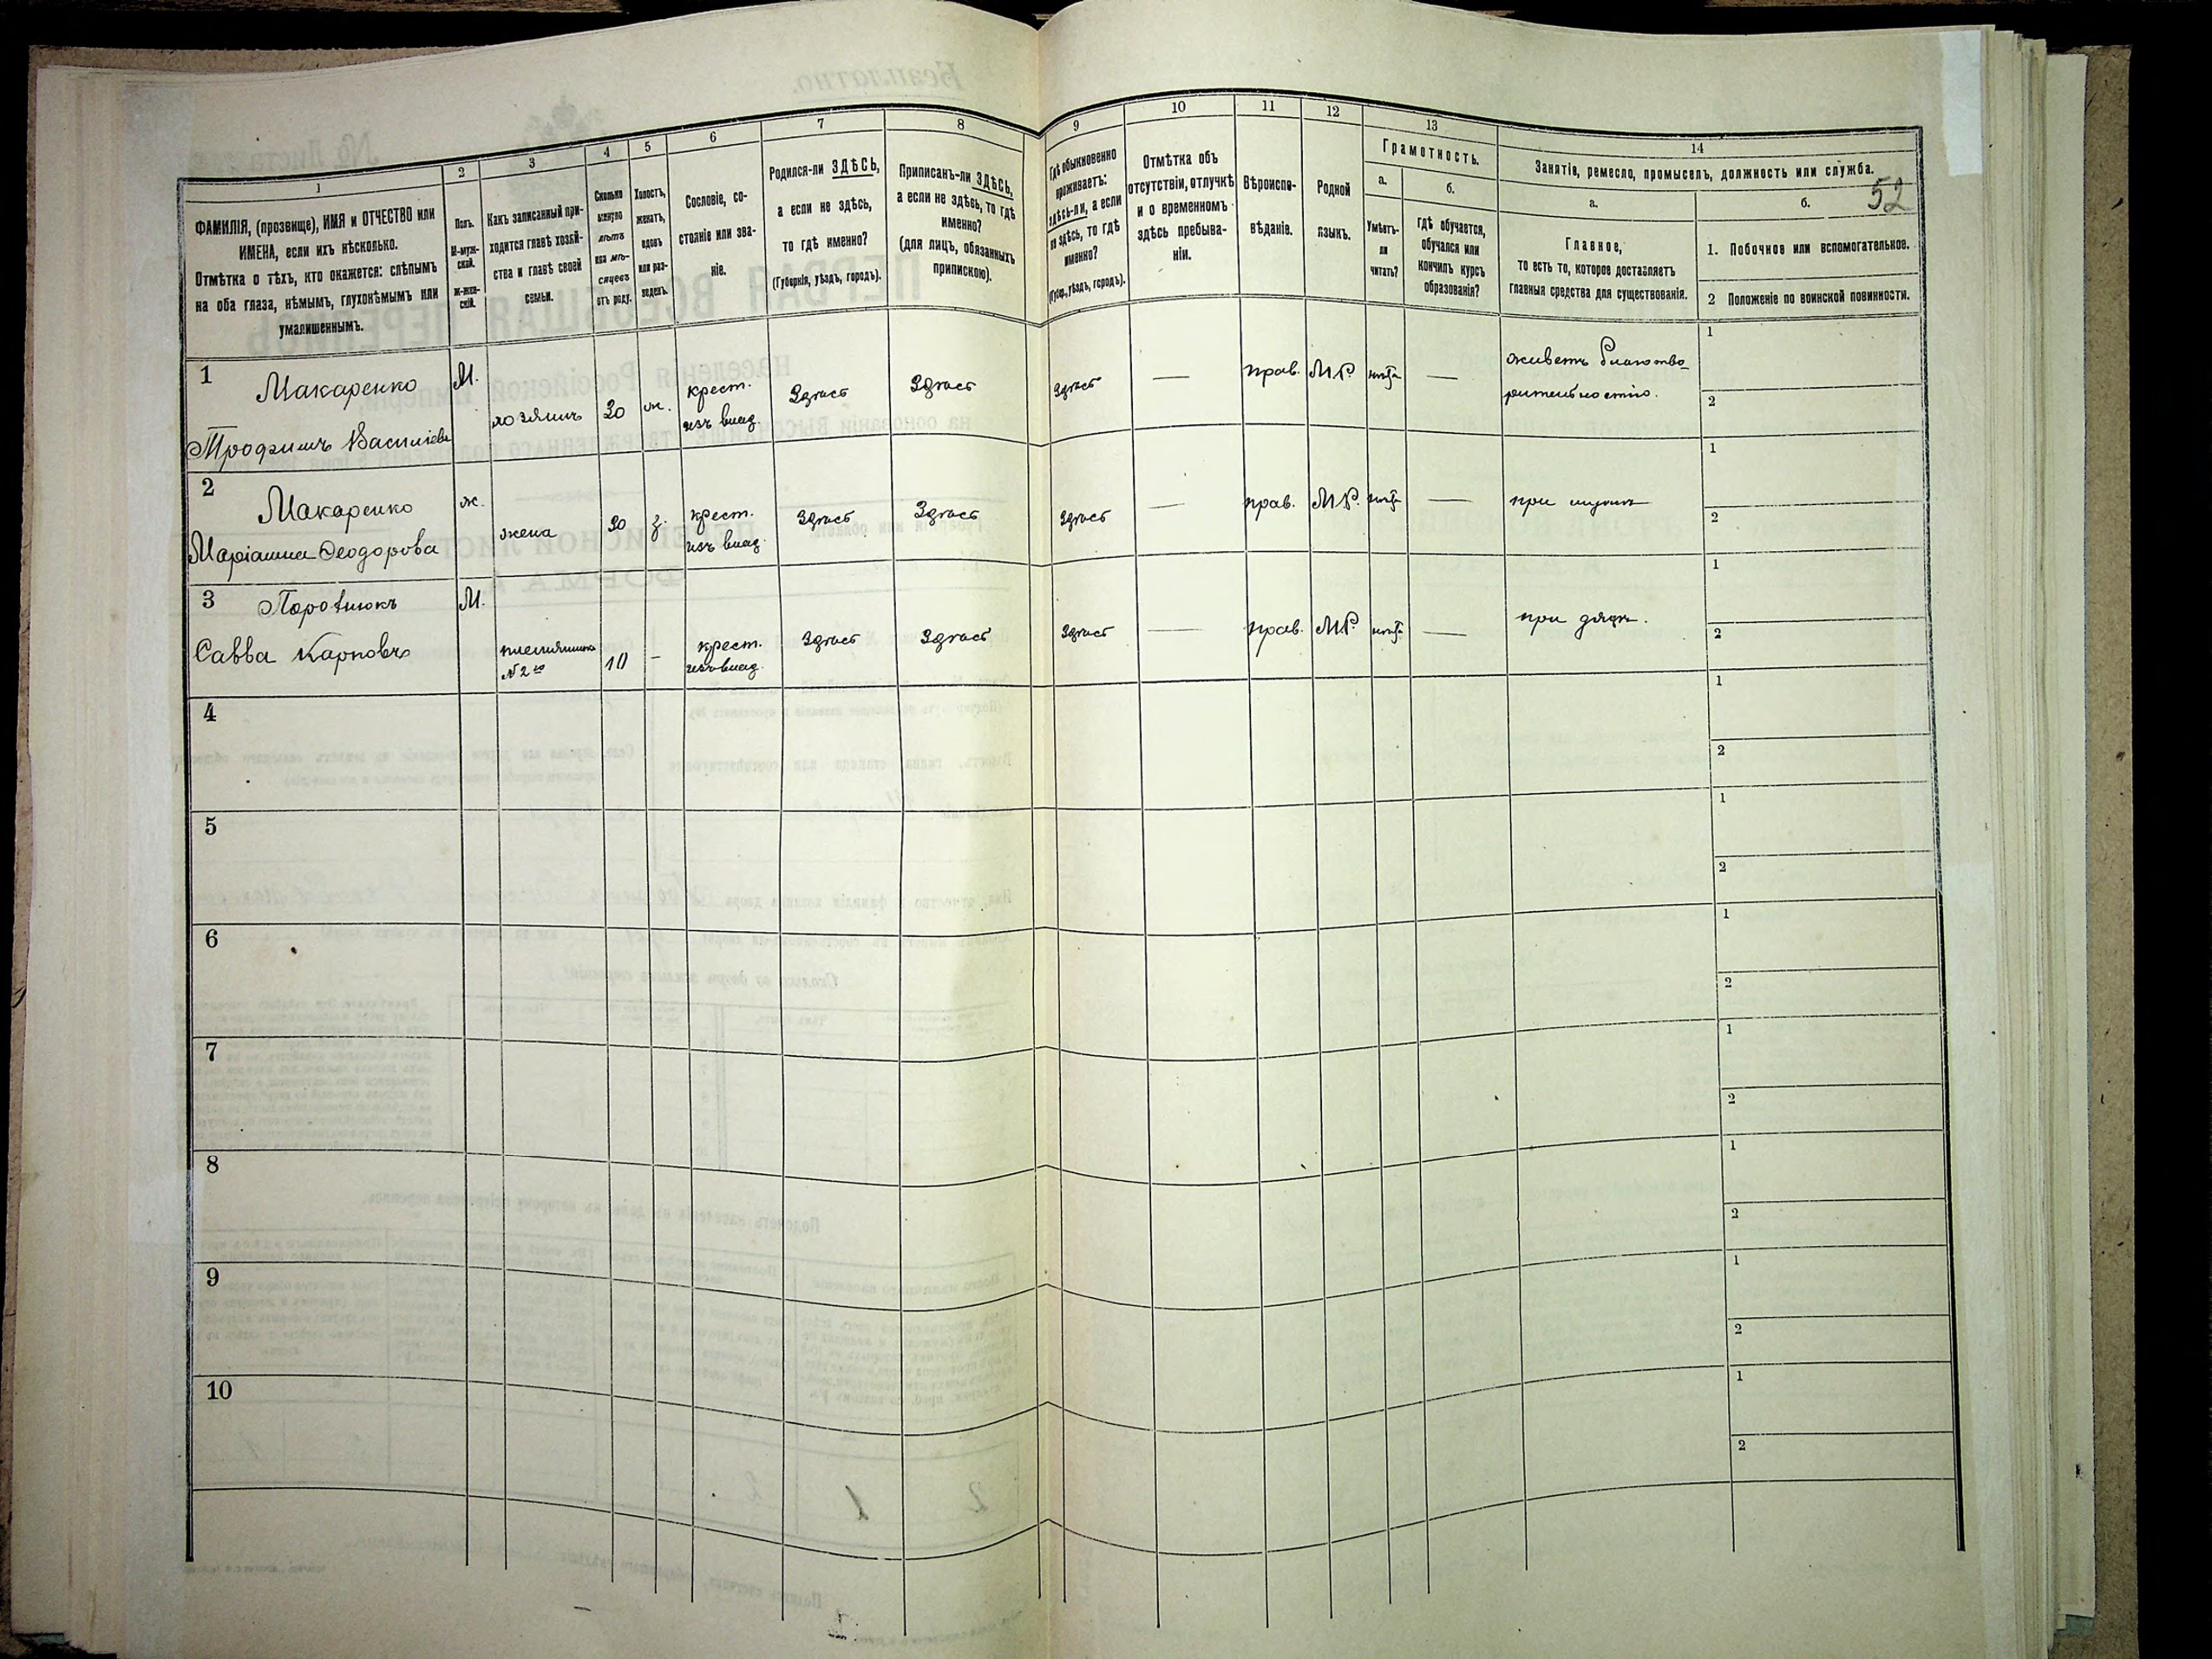 52
1
2
3
4
5
6
7
8
9
10
11
12
13
14
ФАМИЛІЯ, (прозвище), ИМЯ и ОТЧЕСТВО или
ИМЕНА, если ихъ нѣсколько.
Отмѣтка о тѣхъ, кто окажется: слѣпымъ
на оба глаза, нѣмымъ, глухонѣмымъ или
умалишеннымъ.
Полъ.
М-муж-
ской.
ж-жен-
скій.
Какъ записанный при-
ходится главѣ хозяй-
ства и главѣ своей
семьи.
Сколько
минуло
лѣтъ
или мѣ-
сяцевъ
отъ роду.
Холостъ,
женатъ,
вдовъ
или раз-
веденъ.
Сословіе, со-
стояніе или зва-
ніе.
Родился-ли ЗДѢСЬ,
а если не здѣсь,
то гдѣ именно?
(Губернія, уѣздъ, городъ).
Приписанъ-ли ЗДѢСЬ,
а если не здѣсь, то гдѣ
именно?
(для лицъ, обязанныхъ
припискою).
Гдѣ обыкновенно
проживаетъ:
здѣсь-ли, а если
не здѣсь, то гдѣ
именно?
(Губер., уѣздъ, городъ).
Отмѣтка объ
отсутствіи, отлучкѣ
и о временномъ
здѣсь пребыва-
ніи.
Вѣроиспо-
вѣданіе.
Родной
языкъ.
Грамотность.
а.
Умѣетъ-
ли
читать?
б.
Гдѣ обучается,
обучался или
кончилъ курсъ
образованія?
Занятіе, ремесло, промыселъ, должность или служба.
а.
Главное,
то есть то, которое доставляетъ
главныя средства для существованія.
б.
1. Побочное или вспомогательное.
2 Положеніе по воинской повинности.
1 Макаренко М. крест. Здѣсь Здѣсь Здѣсь — прав. М.Р. нѣтъ — живетъ благотво-
Трофимъ Васильевъ хозяинъ ж. изъ влад. рительностію.
1
2
2 Макаренко ж. жена крест. Здѣсь Здѣсь Здѣсь — прав. М.Р. нѣтъ — при мужѣ
Маріанна Ѳеодорова з. изъ влад.
1
2
3 М. крест. Здѣсь Здѣсь Здѣсь — прав. М.Р. нѣтъ — при дядѣ.
Савва Карповъ племянникъ 10 — изъ влад.
№ 2го
1
2
4
1
2
5
1
2
6
1
2
7
1
2
8
1
2
9
1
2
10
1
2